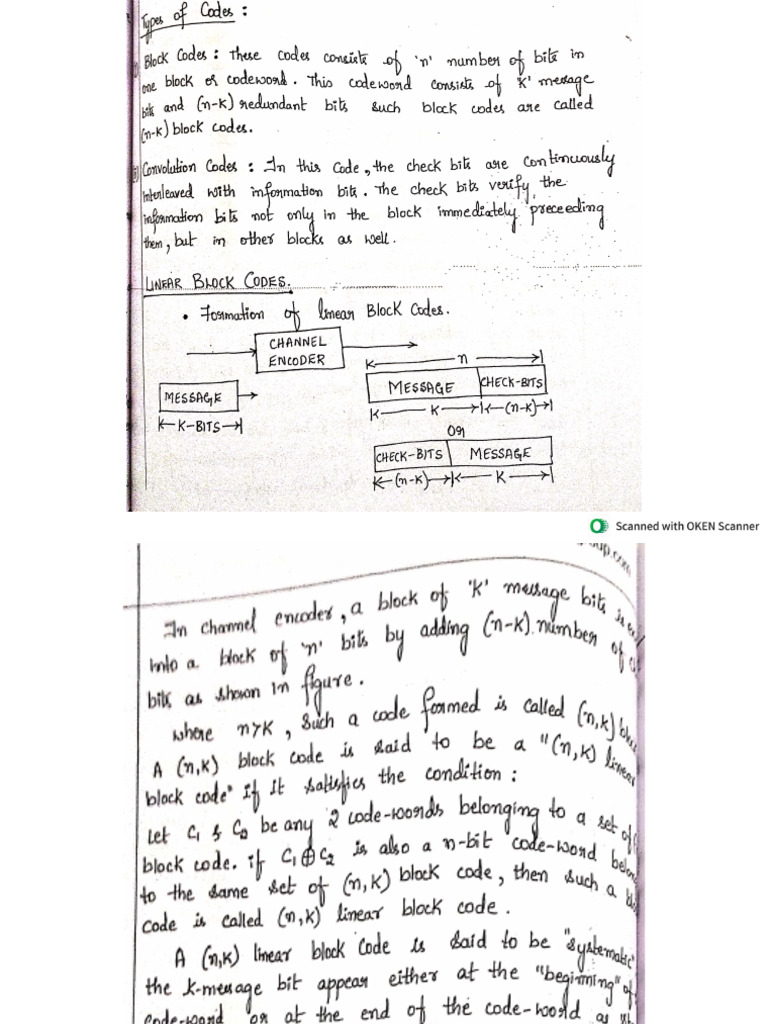 Types of Codes :
i) Block Codes : These codes consists of 'n' number of bits in
one block or codeword. This codeword consists of 'K' message
bits and (n-k) redundant bits such block codes are called
(n-k) block codes.
ii) Convolution Codes : In this code, the check bits are continuously
interleaved with information bits. The check bits verify the
information bits not only in the block immediately preceeding
them, but in other blocks as well.
LINEAR BLOCK CODES.
• Formation of linear Block Codes.
CHANNEL
ENCODER
MESSAGE
K-BITS
n
MESSAGE CHECK-BITS
K (n-K)
or
CHECK-BITS MESSAGE
(n-K) K
Scanned with OKEN Scanner
In channel encoder, a block of 'K' message bits is
into a block of 'n' bits by adding (n-K) number of
bits as shown in figure.
where n>K, such a code formed is called (n,K)
A (n,K) block code is said to be a "(n,K) linear
block code" if it satisfies the condition :
Let C1 & C2 be any 2 code-words belonging to a set of
block code. if C1⊕C2 is also a n-bit code-word
to the same set of (n,K) block code, then such a
code is called (n,K) linear block code.
A (n,K) linear block code is said to be "systematic"
the K-message bit appear either at the "beginning" of
code-word or at the end of the code-word as